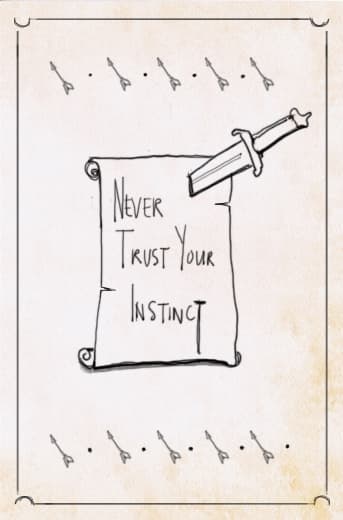 Never
Trust Your
Instinct